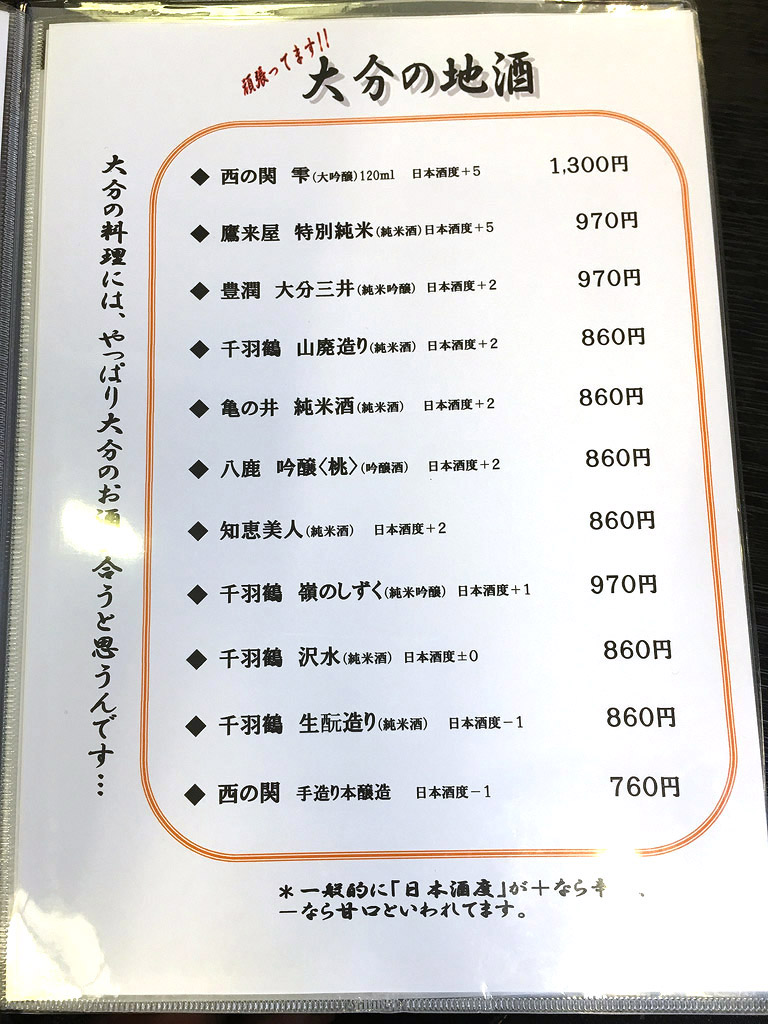 頑張ってます!!
大分の地酒
大分の料理には、やっぱり大分のお 合うと思うんです…
◆ 西の関 雫(大吟醸)120ml 日本酒度+5 1,300円
◆ 鷹来屋 特別純米(純米酒)日本酒度+5 970円
◆ 豊潤 大分三井(純米吟醸) 日本酒度+2 970円
◆ 千羽鶴 山廃造り(純米酒) 日本酒度+2 860円
◆ 亀の井 純米酒(純米酒) 日本酒度+2 860円
◆ 八鹿 吟醸〈桃〉(吟醸酒) 日本酒度+2 860円
◆ 知恵美人(純米酒) 日本酒度+2 860円
◆ 千羽鶴 嶺のしずく(純米吟醸) 日本酒度+1 970円
◆ 千羽鶴 沢水(純米酒) 日本酒度±0 860円
◆ 千羽鶴 生酛造り(純米酒) 日本酒度-1 860円
◆ 西の関 手造り本醸造 日本酒度-1 760円
*一般的に「日本酒度」が+なら
-なら甘口といわれてます。